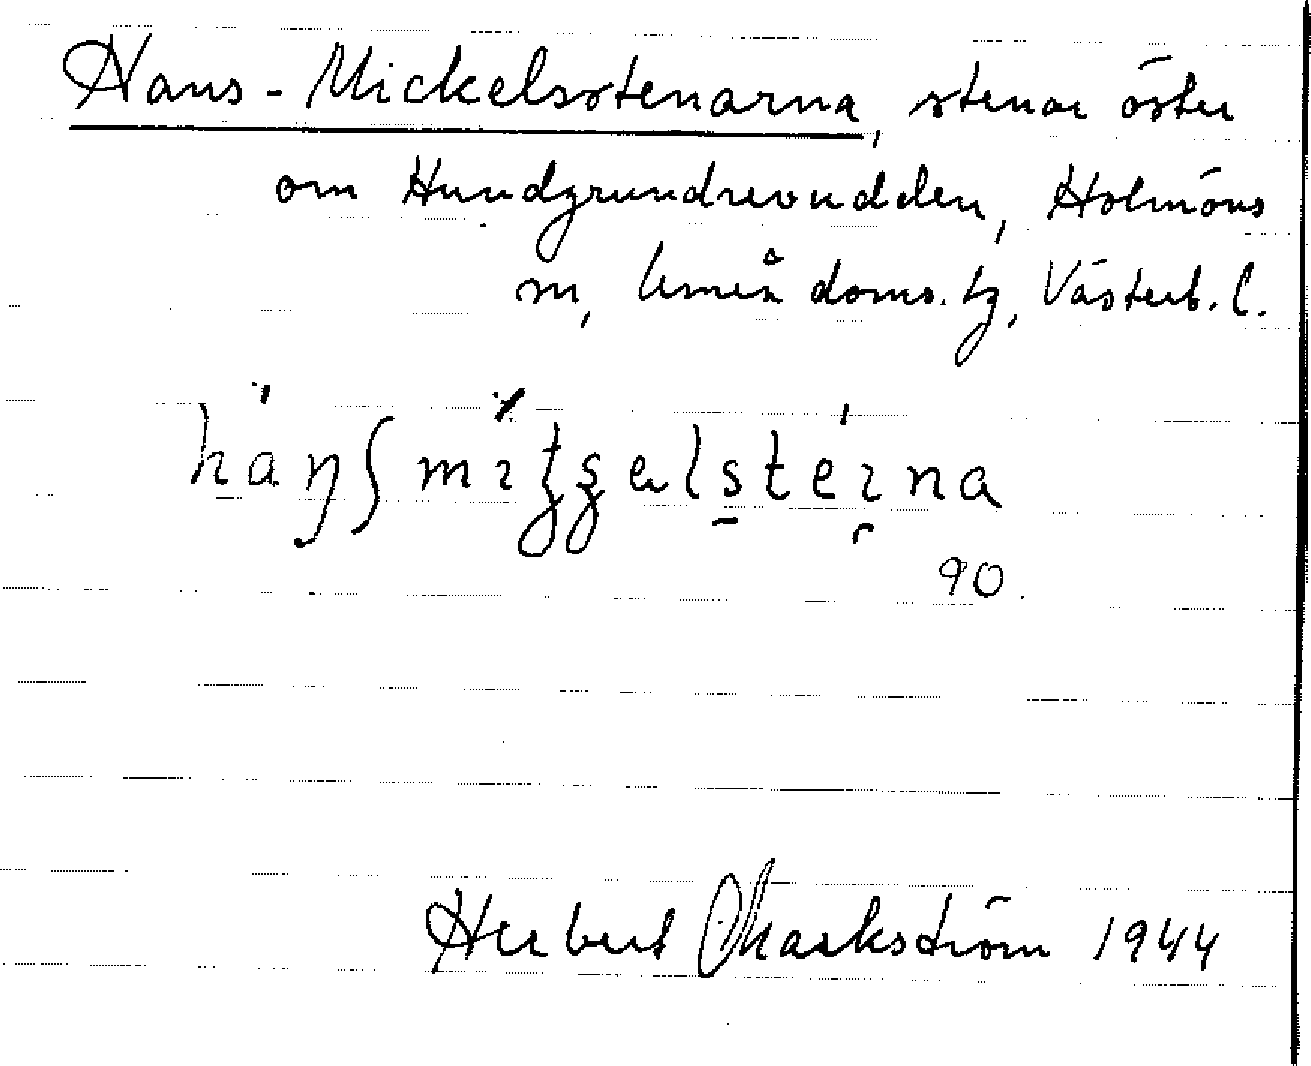 Hans-Mickelsstenarna, stenar öster
om Hundgrundrevudden, Holmöns
sn, Umeå doms. tg, Västerb. l.
90.
Herbert Markström 1944